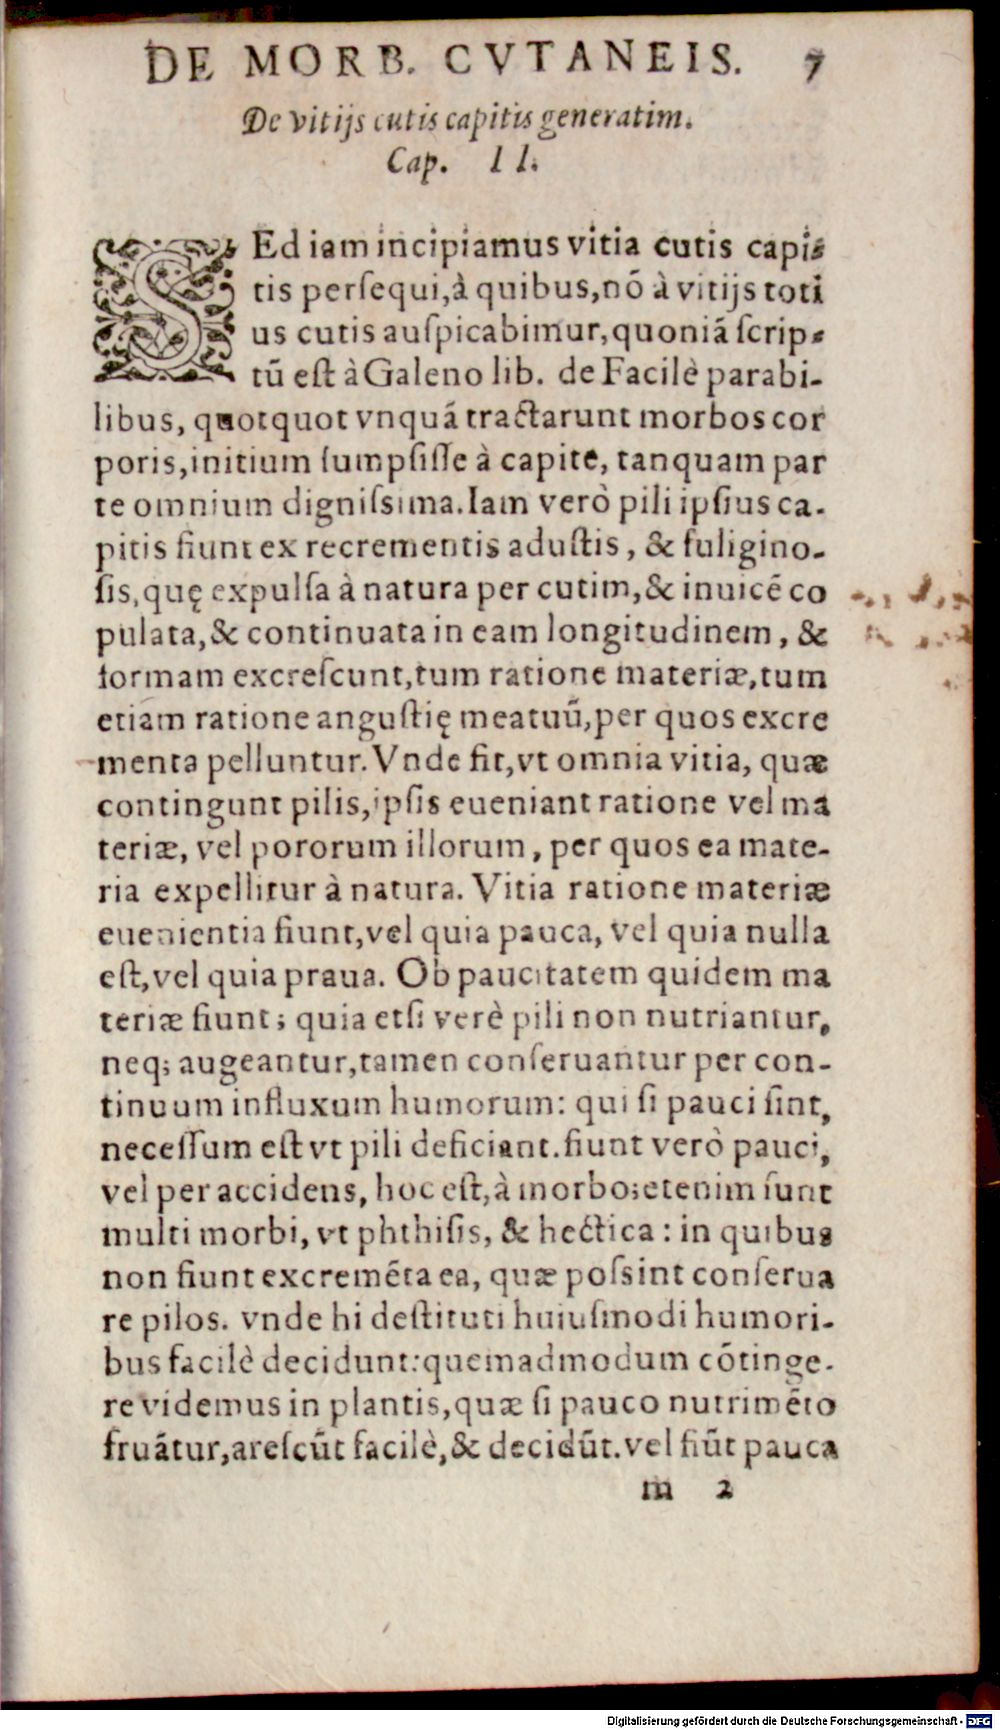 DE MORB. CVTANEIS. 7
De vitijs cutis capitis generatim.
Cap. II.
SEd iam incipiamus vitia cutis capi-
tis persequi, à quibus, nõ à vitijs toti
us cutis auspicabimur, quoniã scrip-
tũ est à Galeno lib. de Facilè parabi-
libus, quotquot vnquã tractarunt morbos cor
poris, initium sumpsisse à capite, tanquam par
te omnium dignissima. Iam verò pili ipsius ca-
pitis fiunt ex recrementis adustis, & fuligino-
sis, quę expulsa à natura per cutim, & inuicẽ co
pulata, & continuata in eam longitudinem, &
formam excrescunt, tum ratione materiæ, tum
etiam ratione angustię meatuũ, per quos excre
menta pelluntur. Vnde fit, vt omnia vitia, quæ
contingunt pilis, ipsis eueniant ratione vel ma
teriæ, vel pororum illorum, per quos ea mate-
ria expellitur à natura. Vitia ratione materiæ
euenientia fiunt, vel quia pauca, vel quia nulla
est, vel quia praua. Ob paucitatem quidem ma
teriæ fiunt; quia etsi verè pili non nutriantur,
neq; augeantur, tamen conseruantur per con-
tinuum influxum humorum: qui si pauci sint,
necessum est vt pili deficiant. fiunt verò pauci,
vel per accidens, hoc est, à morbo; etenim sunt
multi morbi, vt phthisis, & hectica: in quibus
non fiunt excremẽta ea, quæ possint conserua
re pilos. vnde hi destituti huiusmodi humori-
bus facilè decidunt: quemadmodum cõtinge-
re videmus in plantis, quæ si pauco nutrimẽto
fruãtur, arescũt facilè, & decidũt. vel fiũt pauca
m 2
Digitalisierung gefördert durch die Deutsche Forschungsgemeinschaft - DFG